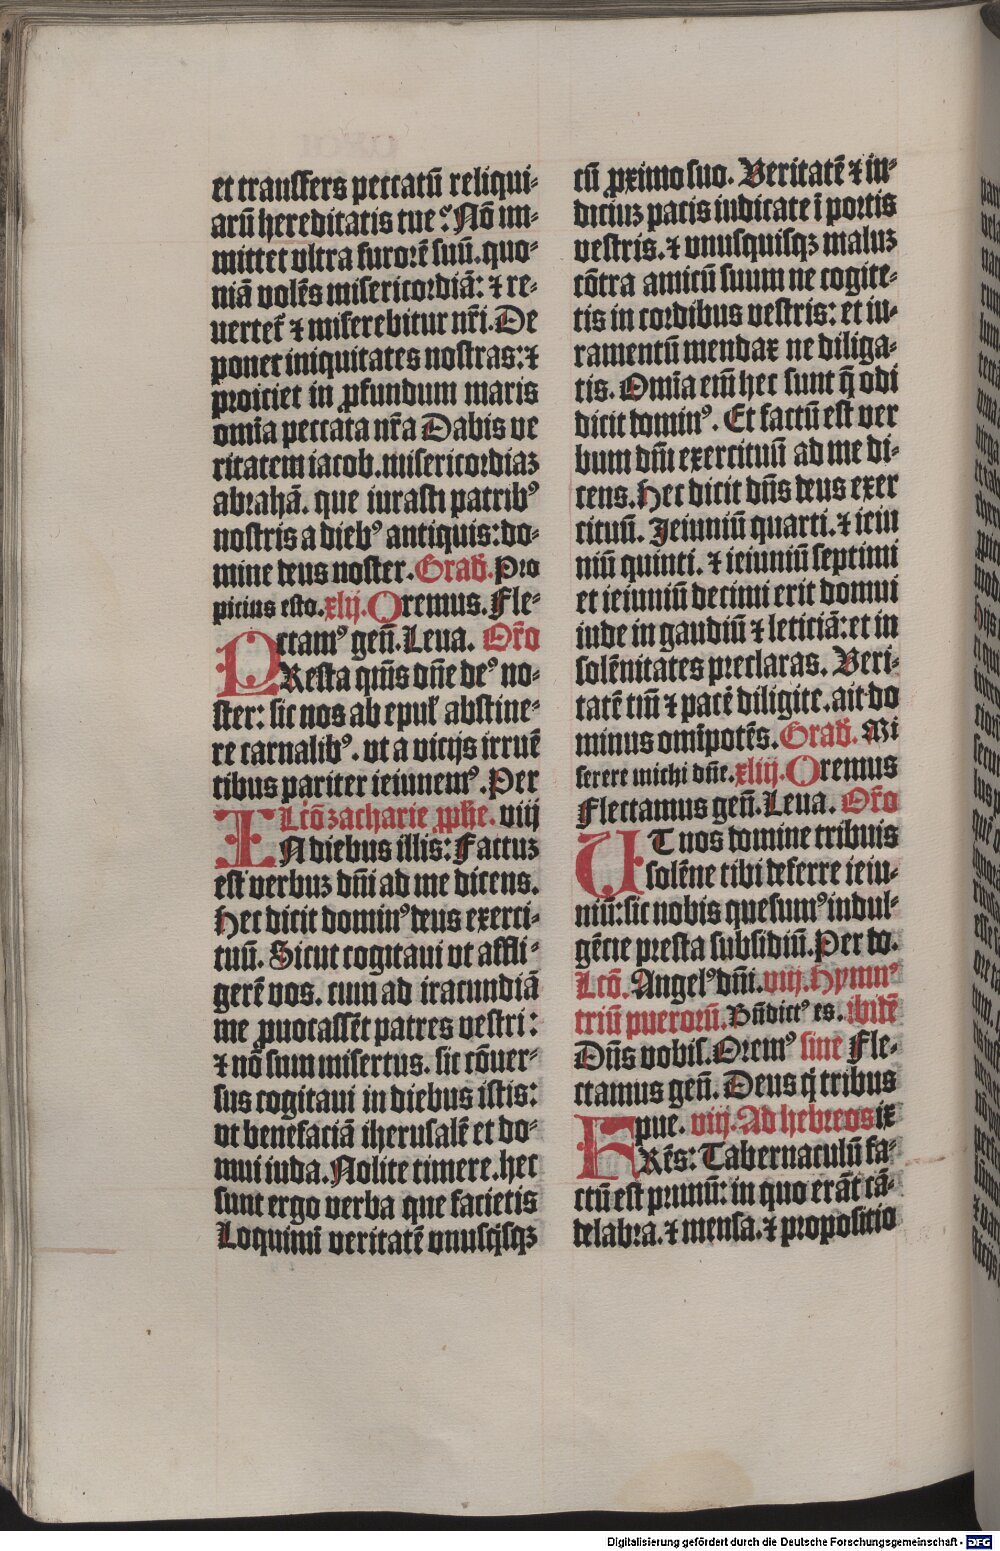 et transfers peccatū reliqui-
arū hereditatis tue? Nō im-
mittet vltra furorē suū. quo-
niā volēs misericordiā: ⁊ re-
uertet̄ ⁊ miserebitur nr̄i. De
ponet iniquitates nostras: ⁊
proiciet in ꝓfundum maris
omīa peccata nr̄a Dabis ve
ritatem iacob. misericordiaꝫ
abrahā. que iurasti patribꝰ
nostris a diebꝰ antiquis: do-
mine deus noster. Grad̄. Pro
picius esto. xlij. Oremus. Fle-
ctamꝰ geñ. Leua. Or̄o
PResta qm̄s dn̄e deꝰ no-
ster: sic nos ab epul̄ abstine-
re carnalibꝰ. vt a vicijs irruē
tibus pariter ieiunemꝰ. Per
Lc̄ō zacharie ꝓph̄e. viij
IN diebus illis: Factuꝫ
est verbuꝫ dn̄i ad me dicens.
Hec dicit dominꝰ deus exerci-
tuū. Sicut cogitaui vt affli-
gerē vos. cum ad iracundiā
me ꝓuocassēt patres vestri:
⁊ nō sum misertus. sic cōuer-
sus cogitaui in diebus istis:
vt benefaciā iherusalē et do-
mui iuda. Nolite timere. hec
sunt ergo verba que facietis
Loquimī veritatē vnusq̄sqꝫ
cū ꝓximo suo. Veritatē ⁊ iu-
diciuꝫ pacis iudicate ī portis
vestris. ⁊ vnusquisqꝫ maluꝫ
cōtra amicū suum ne cogite-
tis in cordibus vestris: et iu-
ramentū mendax ne diliga-
tis. Omīa em̄ hec sunt q̄ odi
dicit dominꝰ. Et factū est ver
bum dn̄i exercituū ad me di-
cens. Hec dicit dn̄s deus exer
cituū. Ieiuniū quarti. ⁊ ieiu
niū quinti. ⁊ ieiuniū septimi
et ieiuniū decimi erit domui
iude in gaudiū ⁊ leticiā: et in
solēnitates preclaras. Veri-
tatē tm̄ ⁊ pacē diligite. ait do
minus omīpotēs. Grad̄. Mi
serere michi dn̄e. xliij. Oremus
Flectamus geñ. Leua. Or̄o
UT nos domine tribuis
solēne tibi deferre ieiu-
niū: sic nobis quesumꝰ indul-
gētie presta subsidiū. Per do.
Lc̄ō. Angelꝰ dn̄i. viij. Hymnꝰ
triū puerorū. Bn̄dictꝰ es. ibidē
Dn̄s vobis. Oremꝰ sine Fle-
ctamus geñ. Deus q̄ tribus
pue. viij. Ad hebreos ix
FRēs: Tabernaculū fa-
ctū est primū: in quo erāt cā-
delabra. ⁊ mensa. ⁊ propositio
Digitalisierung gefördert durch die Deutsche Forschungsgemeinschaft - DFG